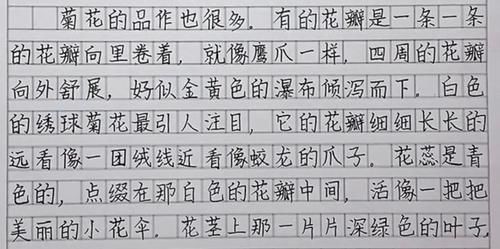 菊花的品作也很多．有的花瓣是一条一条
的花瓣向里卷着，就像鹰爪一样，四周的花瓣
向外舒展，好似金黄色的瀑布倾泻而下．白色
的绣球菊花最引人注目，它的花瓣细细长长的
远看像一团绒线近看像蛟龙的爪子．花蕊是青
色的，点缀在那白色的花瓣中间，活像一把把
美丽的小花伞．花茎上那一片片深绿色的叶子．